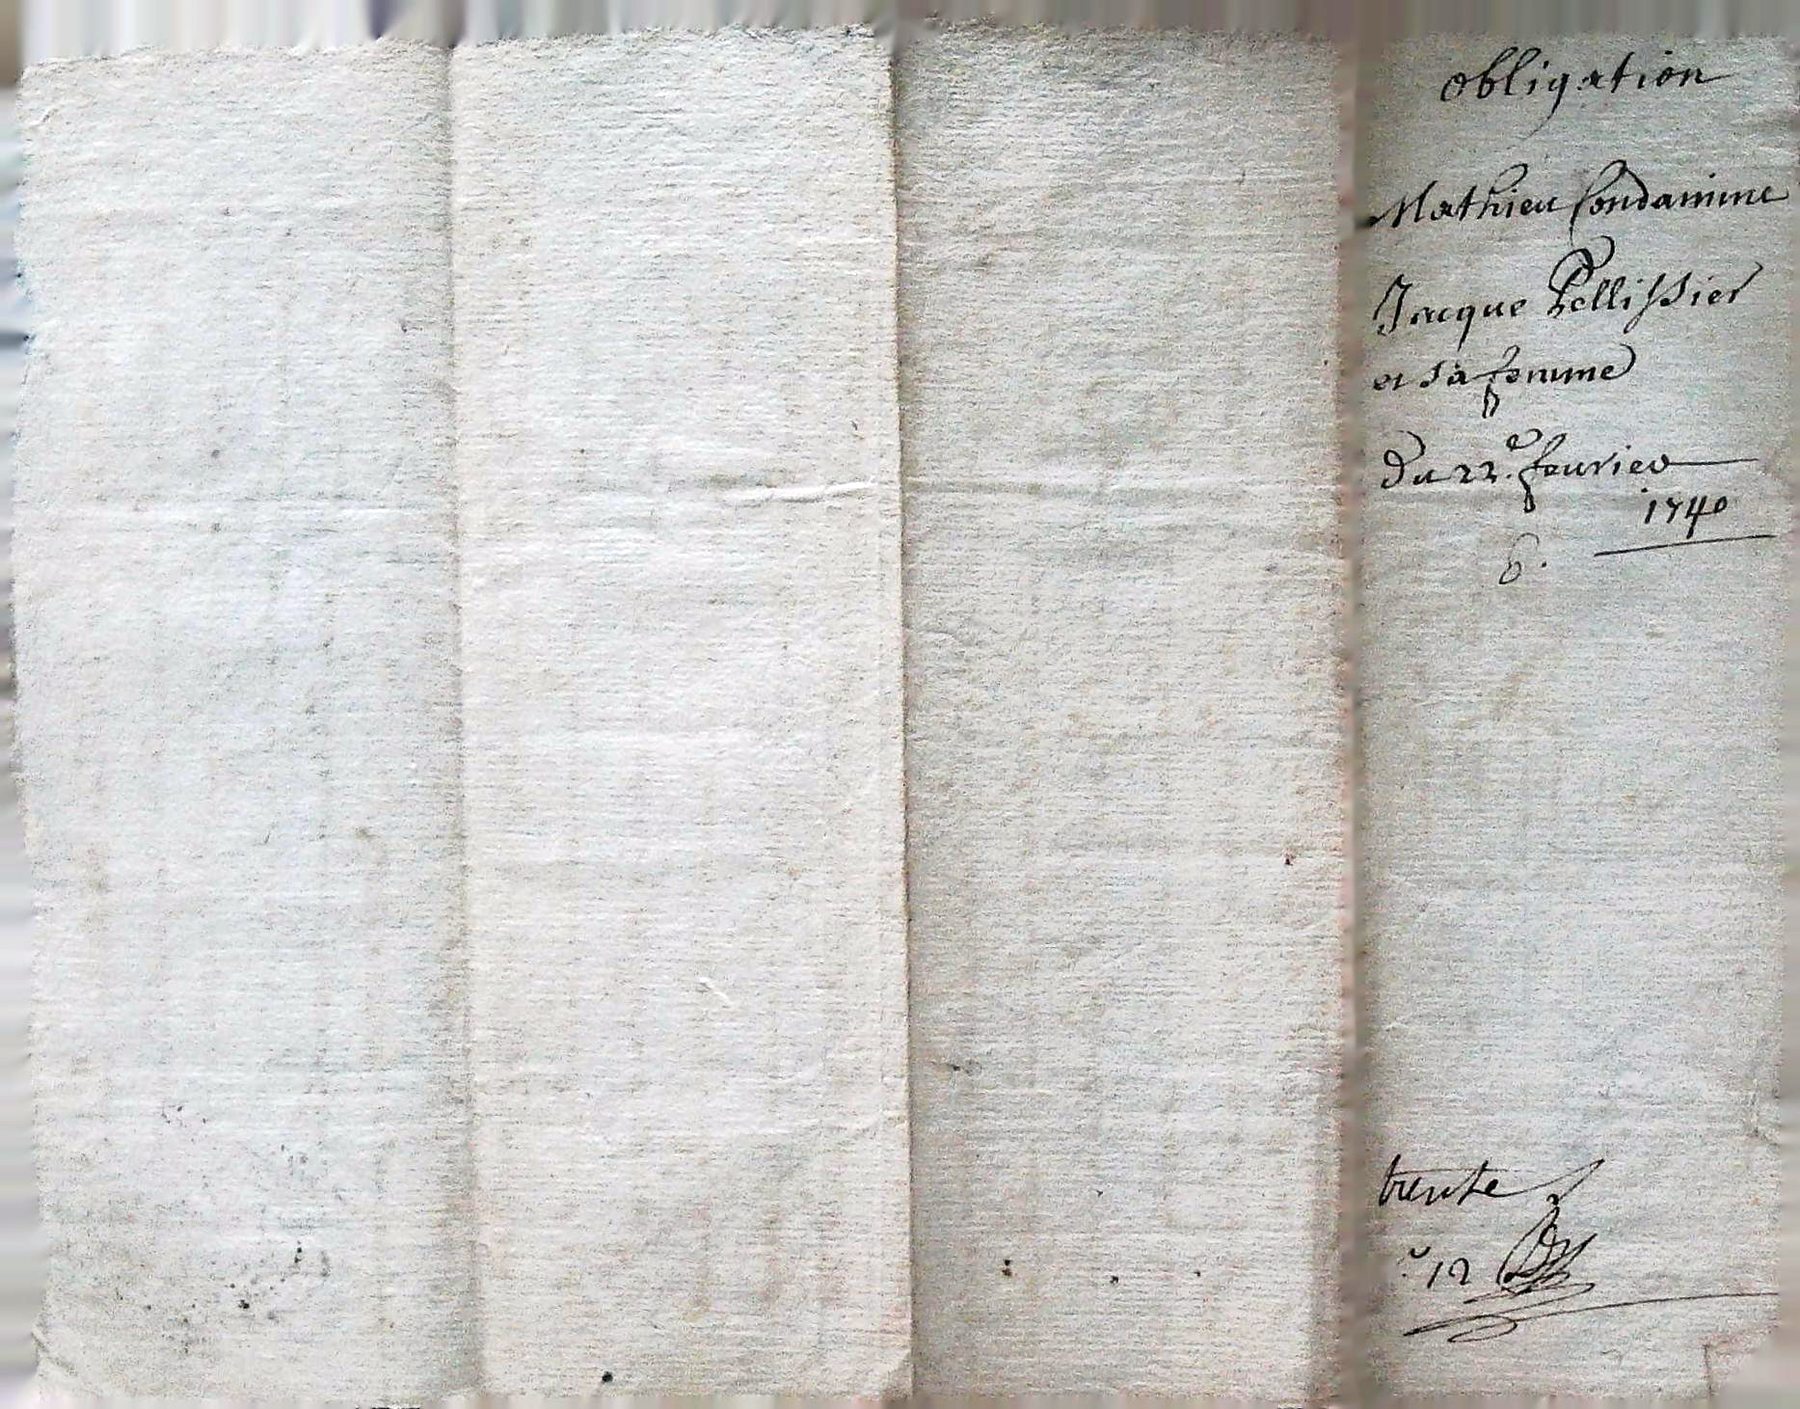 obligation
Mathieu Condamine
Jacque Pellissier
et sa femme
du 22e. feurier
1740
6.
trente
12